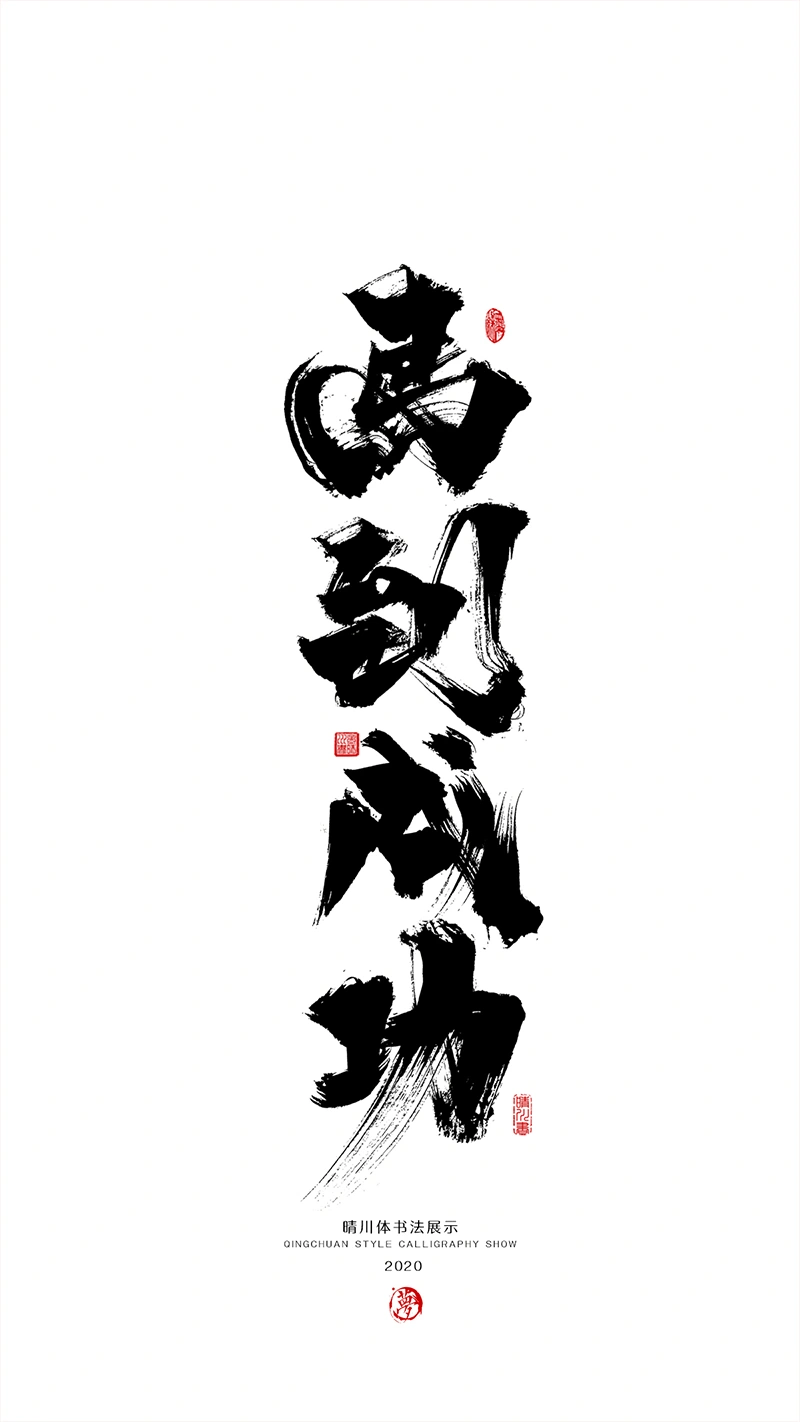 馬到成功
晴川書
晴川体书法展示
QINGCHUAN STYLE CALLIGRAPHY SHOW
2020
夢